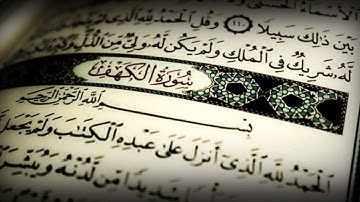 الْأَسْمَاءُ الْحُسْنَىٰ
بَيْنَ ذَٰلِكَ سَبِيلًا ١١٠ وَقُلِ الْحَمْدُ لِلَّهِ
لَّهُ شَرِيكٌ فِي الْمُلْكِ وَلَمْ يَكُن لَّهُ وَلِيٌّ مِّنَ الذُّلِّ وَكَبِّرْهُ
سُورَةُ الْكَهْفِ
بِسْمِ اللَّهِ الرَّحْمَٰنِ الرَّحِيمِ
الْحَمْدُ لِلَّهِ الَّذِي أَنزَلَ عَلَىٰ عَبْدِهِ الْكِتَٰبَ وَلَمْ يَجْعَل
بَأْسًا شَدِيدًا مِّن لَّدُنْهُ وَيُبَشِّرَ